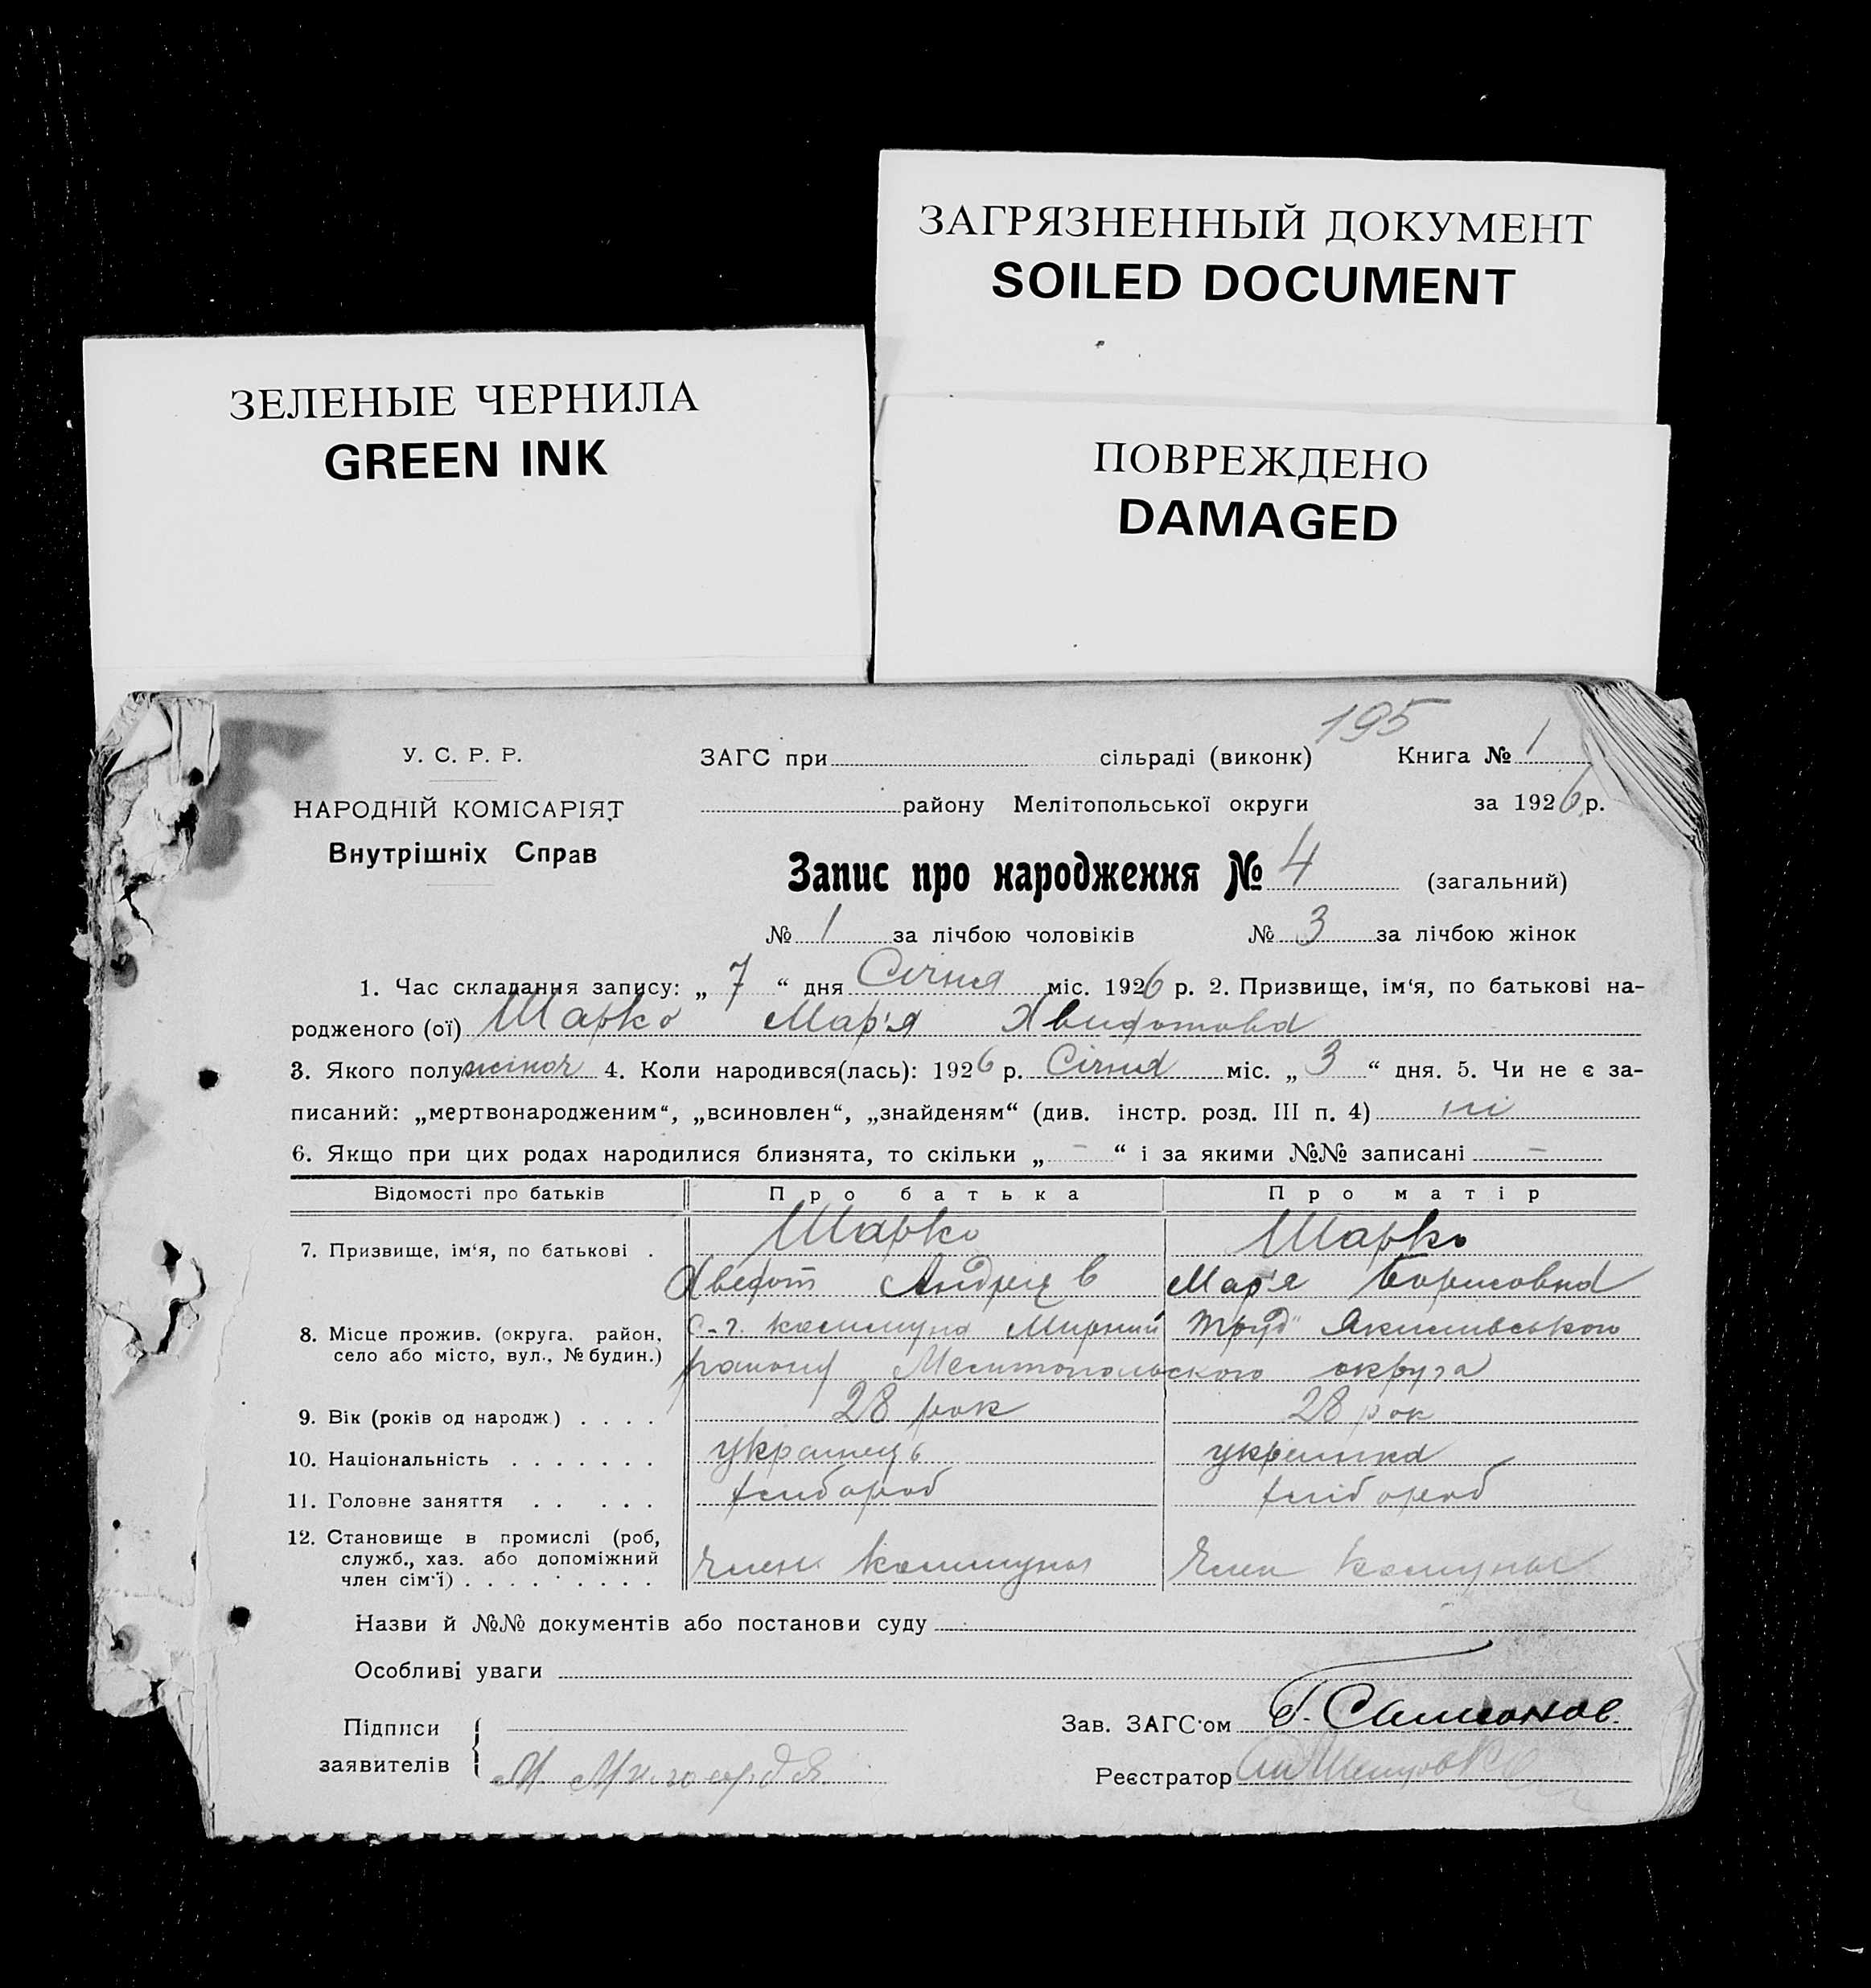 ЗАГРЯЗНЕННЫЙ ДОКУМЕНТ
SOILED DOCUMENT
ЗЕЛЕНЫЕ ЧЕРНИЛА
GREEN INK
ПОВРЕЖДЕНО
DAMAGED
195
У. С. Р. Р.
ЗАГС при сільраді (виконк) Книга № 1
НАРОДНІЙ КОМІСАРІЯТ
району Мелітопольської округи за 1926 р.
Внутрішніх Справ
Запис про народження № 4 (загальний)
№ 1 за лічбою чоловіків № 3 за лічбою жінок
1. Час складання запису: „ 7 “ дня Січня міс. 1926 р. 2. Призвище, ім‘я, по батькові на-
родженого (ої) Шарко Мар'я Хвидотовна
3. Якого полу жіноч 4. Коли народився(лась): 1926 р. Січня міс. „ 3 “ дня. 5. Чи не є за-
писаний: „мертвонародженим“, „всиновлен“, „знайденям“ (див. інстр. розд. III п. 4) ні
6. Якщо при цих родах народилися близнята, то скільки „ - “ і за якими №№ записані -
Відомості про батьків Про батька Про матір
7. Призвище, ім‘я, по батькові . Шарко Шарко
Хведот Андреїв Мар'я Борисовна
8. Місце прожив. (округа, район, село або місто, вул., № будин.) с-г. коммуна Мирний труд Якимівського
району Мелитопольского округа
9. Вік (років од народж) . . . . 28 рок 28 рок
10. Національність . . . . . . . українець українка
11. Головне заняття . . . . . хлібороб хлібороб
12. Становище в промислі (роб, служб., хаз. або допоміжний член сім‘ї) . . . . . . . . . член коммуны член комуны
Назви й №№ документів або постанови суду
Особливі уваги
Підписи заявителів
Зав. ЗАГС‘ом Г. Самсонов.
Реєстратор